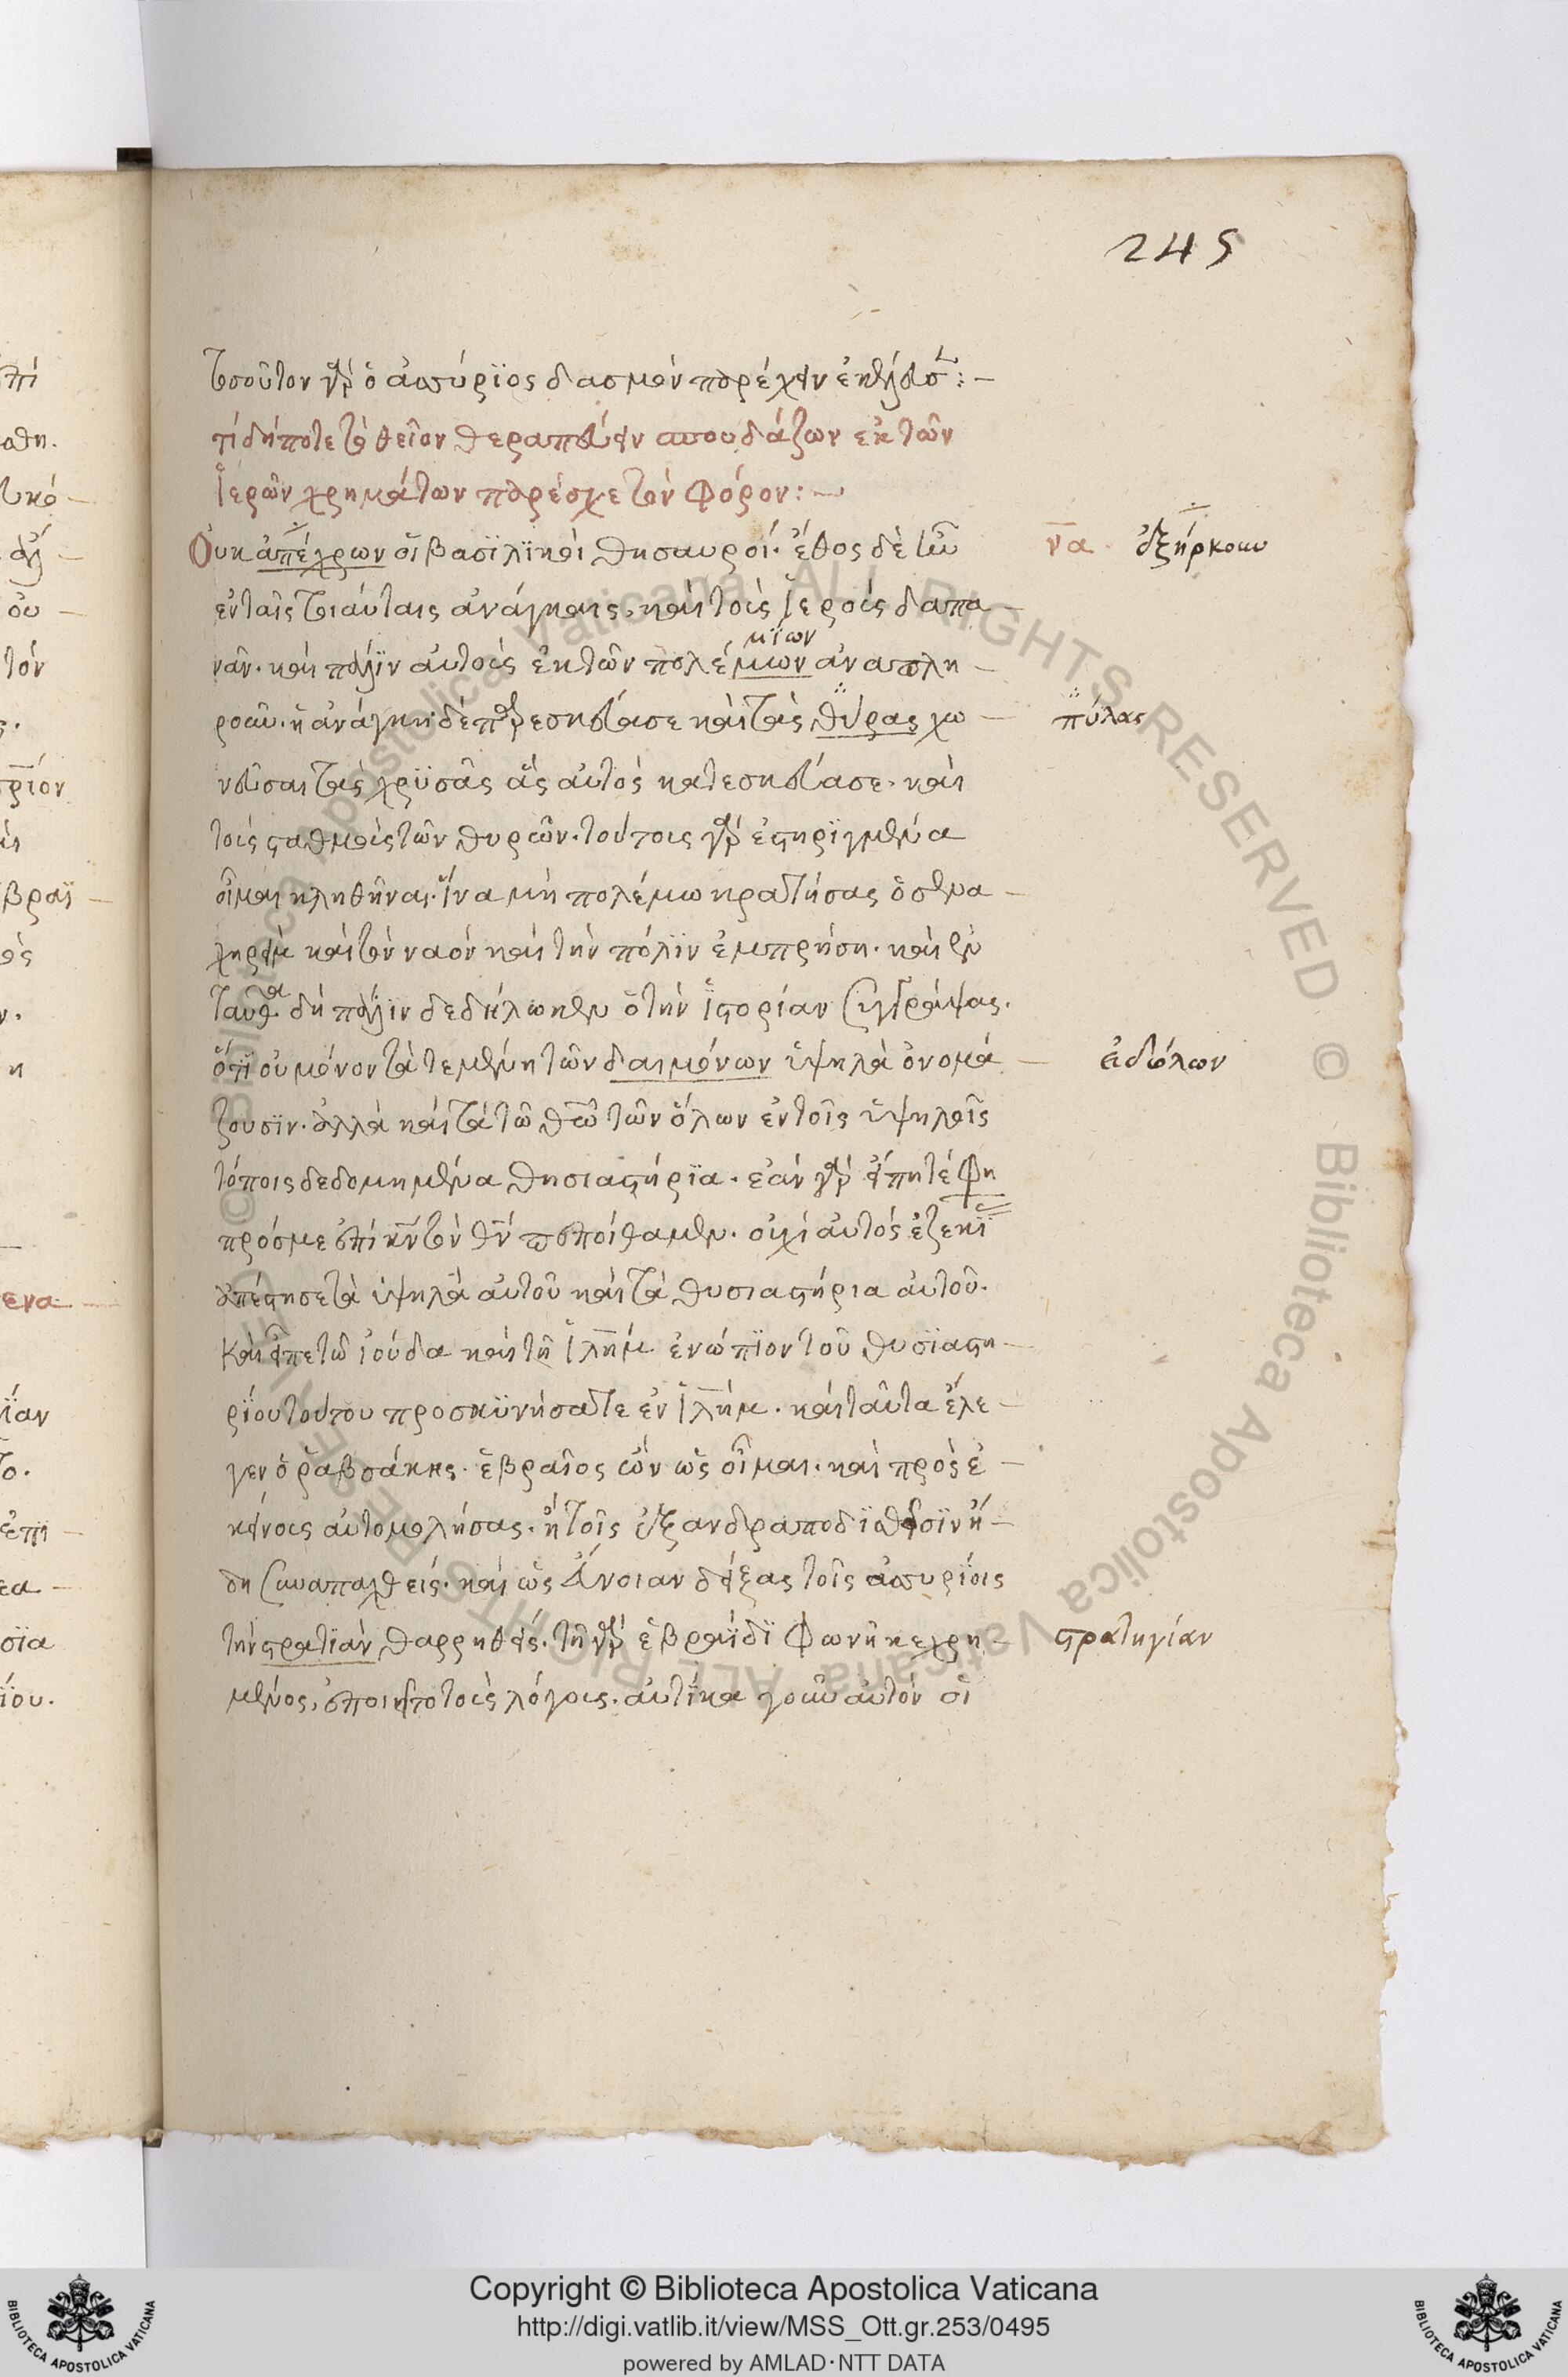 245
τοσοῦτον γὰρ ὁ ἀσσύριος δασμὸν παρέχειν ἐκέλευσεν:–
τί δήποτε τὸ θεῖον θεραπεύειν σπουδάζων ἐκ τῶν
ἱερῶν χρημάτων παρέσχε τὸν φόρον:–
Οὐκ ἀπέχρων οἱ βασιλικοὶ θησαυροί. ἔθος δὲ ἦν
να. ἐξήρκουν
ἐν ταῖς τοιαύταις ἀνάγκαις, καὶ τοῖς ἱεροῖς δαπα-
μΐων
νᾶν. καὶ πάλιν αὐτοῖς ἐκ τῶν πολέμιων ἀναπλη-
ροῦν. ἡ ἀνάγκη δὲ παρεσκεύασε καὶ τὰς θύρας χω-
πύλας
νεῦσαι τὰς χρυσᾶς ἃς αὐτὸς κατεσκεύασε. καὶ
τοῖς σταθμοῖς τῶν θυρῶν. τούτοις γὰρ ἐστηριγμένα
οἶμαι κληθῆναι. ἵνα μὴ πολέμω κρατήσας ὁ σενα-
χηρεὶμ καὶ τὸν ναὸν καὶ τὴν πόλιν ἐμπρήση. καὶ ἐν
ταῦθα δὴ πάλιν δεδήλωκεν ὁ τὴν ἱστορίαν συγγράψας.
ὅτι οὐ μόνον τὰ τεμένη τῶν δαιμόνων ὑψηλὰ ὀνομά-
εἰδώλων
ζουσιν. ἀλλὰ καὶ τὰ τῶ θῶ τῶν ὅλων ἐν τοῖς ὑψηλοῖς
τόποις δεδομημένα θησιαστήρια. ἐὰν γὰρ εἴπητέ φη
πρός με ἐπὶ κν τὸν θν πεποίθαμεν. οὐχὶ αὐτὸς ἐζεκι
ἀπέστησε τὰ ὑψηλὰ αὐτοῦ καὶ τὰ θυσιαστήρια αὐτοῦ.
καὶ εἶπε τῶ ἰούδα καὶ τῆ ἱλήμ ἐνώπιον τοῦ θυσιαστη-
ρίου τούτου προσκυνήσατε ἐν ἱλήμ. καὶ ταῦτα ἔλε-
γεν ὁ ῥαβσάκης. ἑβραῖος ὢν ὡς οἶμαι. καὶ πρὸς ἐ-
κείνους αὐτομολήσας. ἢ τοῖς ἐξανδραποδισθεῖσιν ἤ-
δη συναπαχθείς. καὶ ὡς εὔνοιαν δείξας τοῖς ἀσσυρίοις
τὴν στρατιὰν θαρρηθείς. τῆ γὰρ ἑβραΐδι φωνῆ κεχρη-
στρατηγίαν
μένος, ἐποιεῖτο τοὺς λόγους. αὐτίκα γοῦν αὐτὸν οἱ
Copyright © Biblioteca Apostolica Vaticana
http://digi.vatlib.it/view/MSS_Ott.gr.253/0495
powered by AMLAD·NTT DATA